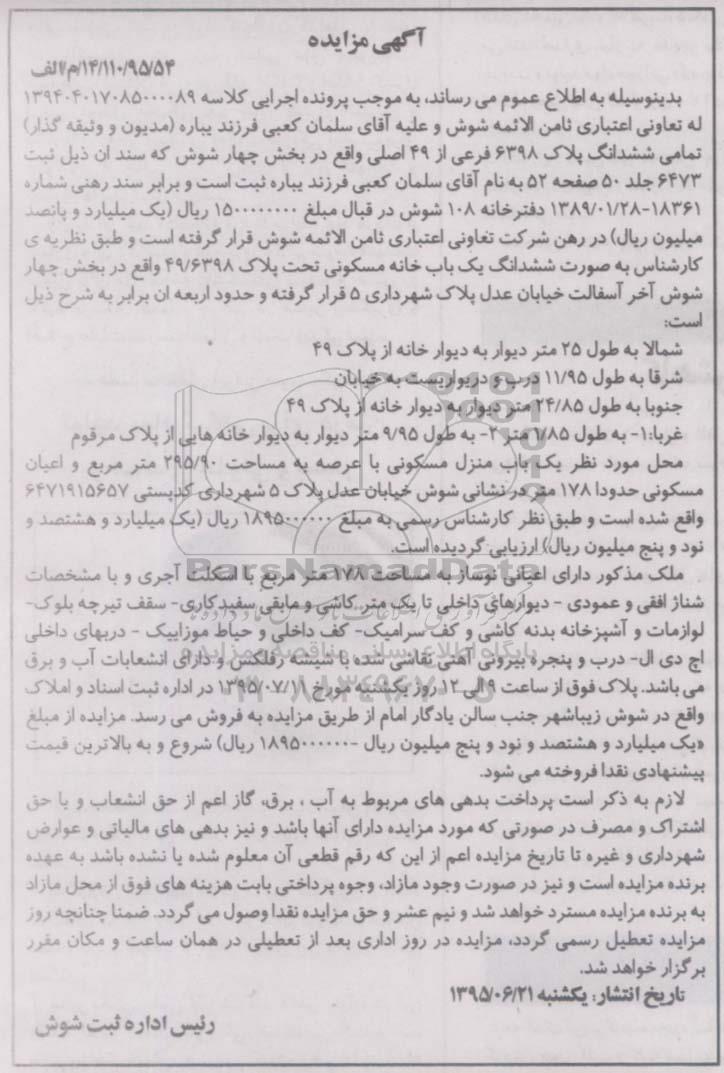 آگهی مزایده
۱۴/۱۱۰/۹۵/۵۴/م/الف
بدینوسیله به اطلاع عموم می رساند، به موجب پرونده اجرایی کلاسه ۱۳۹۴۰۴۰۱۷۰۸۵۰۰۰۰۸۹
له تعاونی اعتباری ثامن الائمه شوش و علیه آقای سلمان کعبی فرزند یباره (مدیون و وثیقه گذار)
تمامی ششدانگ پلاک ۶۳۹۸ فرعی از ۴۹ اصلی واقع در بخش چهار شوش که سند ان ذیل ثبت
۶۴۷۳ جلد ۵۰ صفحه ۵۲ به نام آقای سلمان کعبی فرزند یباره ثبت است و برابر سند رهنی شماره
۱۸۳۶۱-۱۳۸۹/۰۱/۲۸ دفترخانه ۱۰۸ شوش در قبال مبلغ ۱۵۰۰۰۰۰۰۰۰ ریال (یک میلیارد و پانصد
میلیون ریال) در رهن شرکت تعاونی اعتباری ثامن الائمه شوش قرار گرفته است و طبق نظریه ی
کارشناس به صورت ششدانگ یک باب خانه مسکونی تحت پلاک ۴۹/۶۳۹۸ واقع در بخش چهار
شوش آخر آسفالت خیابان عدل پلاک شهرداری ۵ قرار گرفته و حدود اربعه ان برابر به شرح ذیل
است:
شمالا به طول ۲۵ متر دیوار به دیوار خانه از پلاک ۴۹
شرقا به طول ۱۱/۹۵ درب و دریواریست به خیابان
جنوبا به طول ۲۴/۸۵ متر دیوار به دیوار خانه از پلاک ۴۹
غربا:۱- به طول ۱/۸۵ متر ۲- به طول ۹/۹۵ متر دیوار به دیوار خانه هایی از پلاک مرقوم
محل مورد نظر یک باب منزل مسکونی با عرصه به مساحت ۲۹۵/۹۰ متر مربع و اعیان
مسکونی حدودا ۱۷۸ متر در نشانی شوش خیابان عدل پلاک ۵ شهرداری کدپستی ۶۴۷۱۹۱۵۶۵۷
واقع شده است و طبق نظر کارشناس رسمی به مبلغ ۱۸۹۵۰۰۰۰۰۰ ریال (یک میلیارد و هشتصد و
نود و پنج میلیون ریال) ارزیابی گردیده است.
ParsNamadData
ملک مذکور دارای اعیانی نوساز به مساحت ۱۷۸ متر مربع با اسکلت آجری و با مشخصات
شناژ افقی و عمودی - دیوارهای داخلی تا یک متر کاشی و مابقی سفیدکاری- سقف تیرچه بلوک-
لوازمات و آشپزخانه بدنه کاشی و کف سرامیک- کف داخلی و حیاط موزاییک - دربهای داخلی
پایگاه اطلاع رسانی مناقصه و مزایده
اچ دی ال- درب و پنجره بیرونی آهنی نقاشی شده با شیشه رفلکس و دارای انشعابات آب و برق
می باشد. پلاک فوق از ساعت ۹ الی ۱۲ روز یکشنبه مورخ ۱۳۹۵/۰۷/۱۱ در اداره ثبت اسناد و املاک
واقع در شوش زیباشهر جنب سالن یادگار امام از طریق مزایده به فروش می رسد. مزایده از مبلغ
«یک میلیارد و هشتصد و نود و پنج میلیون ریال -۱۸۹۵۰۰۰۰۰۰ ریال) شروع و به بالاترین قیمت
پیشنهادی نقدا فروخته می شود.
لازم به ذکر است پرداخت بدهی های مربوط به آب ، برق، گاز اعم از حق انشعاب و یا حق
اشتراک و مصرف در صورتی که مورد مزایده دارای آنها باشد و نیز بدهی های مالیاتی و عوارض
شهرداری و غیره تا تاریخ مزایده اعم از این که رقم قطعی آن معلوم شده یا نشده باشد به عهده
برنده مزایده است و نیز در صورت وجود مازاد، وجوه پرداختی بابت هزینه های فوق از محل مازاد
به برنده مزایده مسترد خواهد شد و نیم عشر و حق مزایده نقدا وصول می گردد. ضمنا چنانچه روز
مزایده تعطیل رسمی گردد، مزایده در روز اداری بعد از تعطیلی در همان ساعت و مکان مقرر
برگزار خواهد شد.
تاریخ انتشار: یکشنبه ۱۳۹۵/۰۶/۲۱
رئیس اداره ثبت شوش